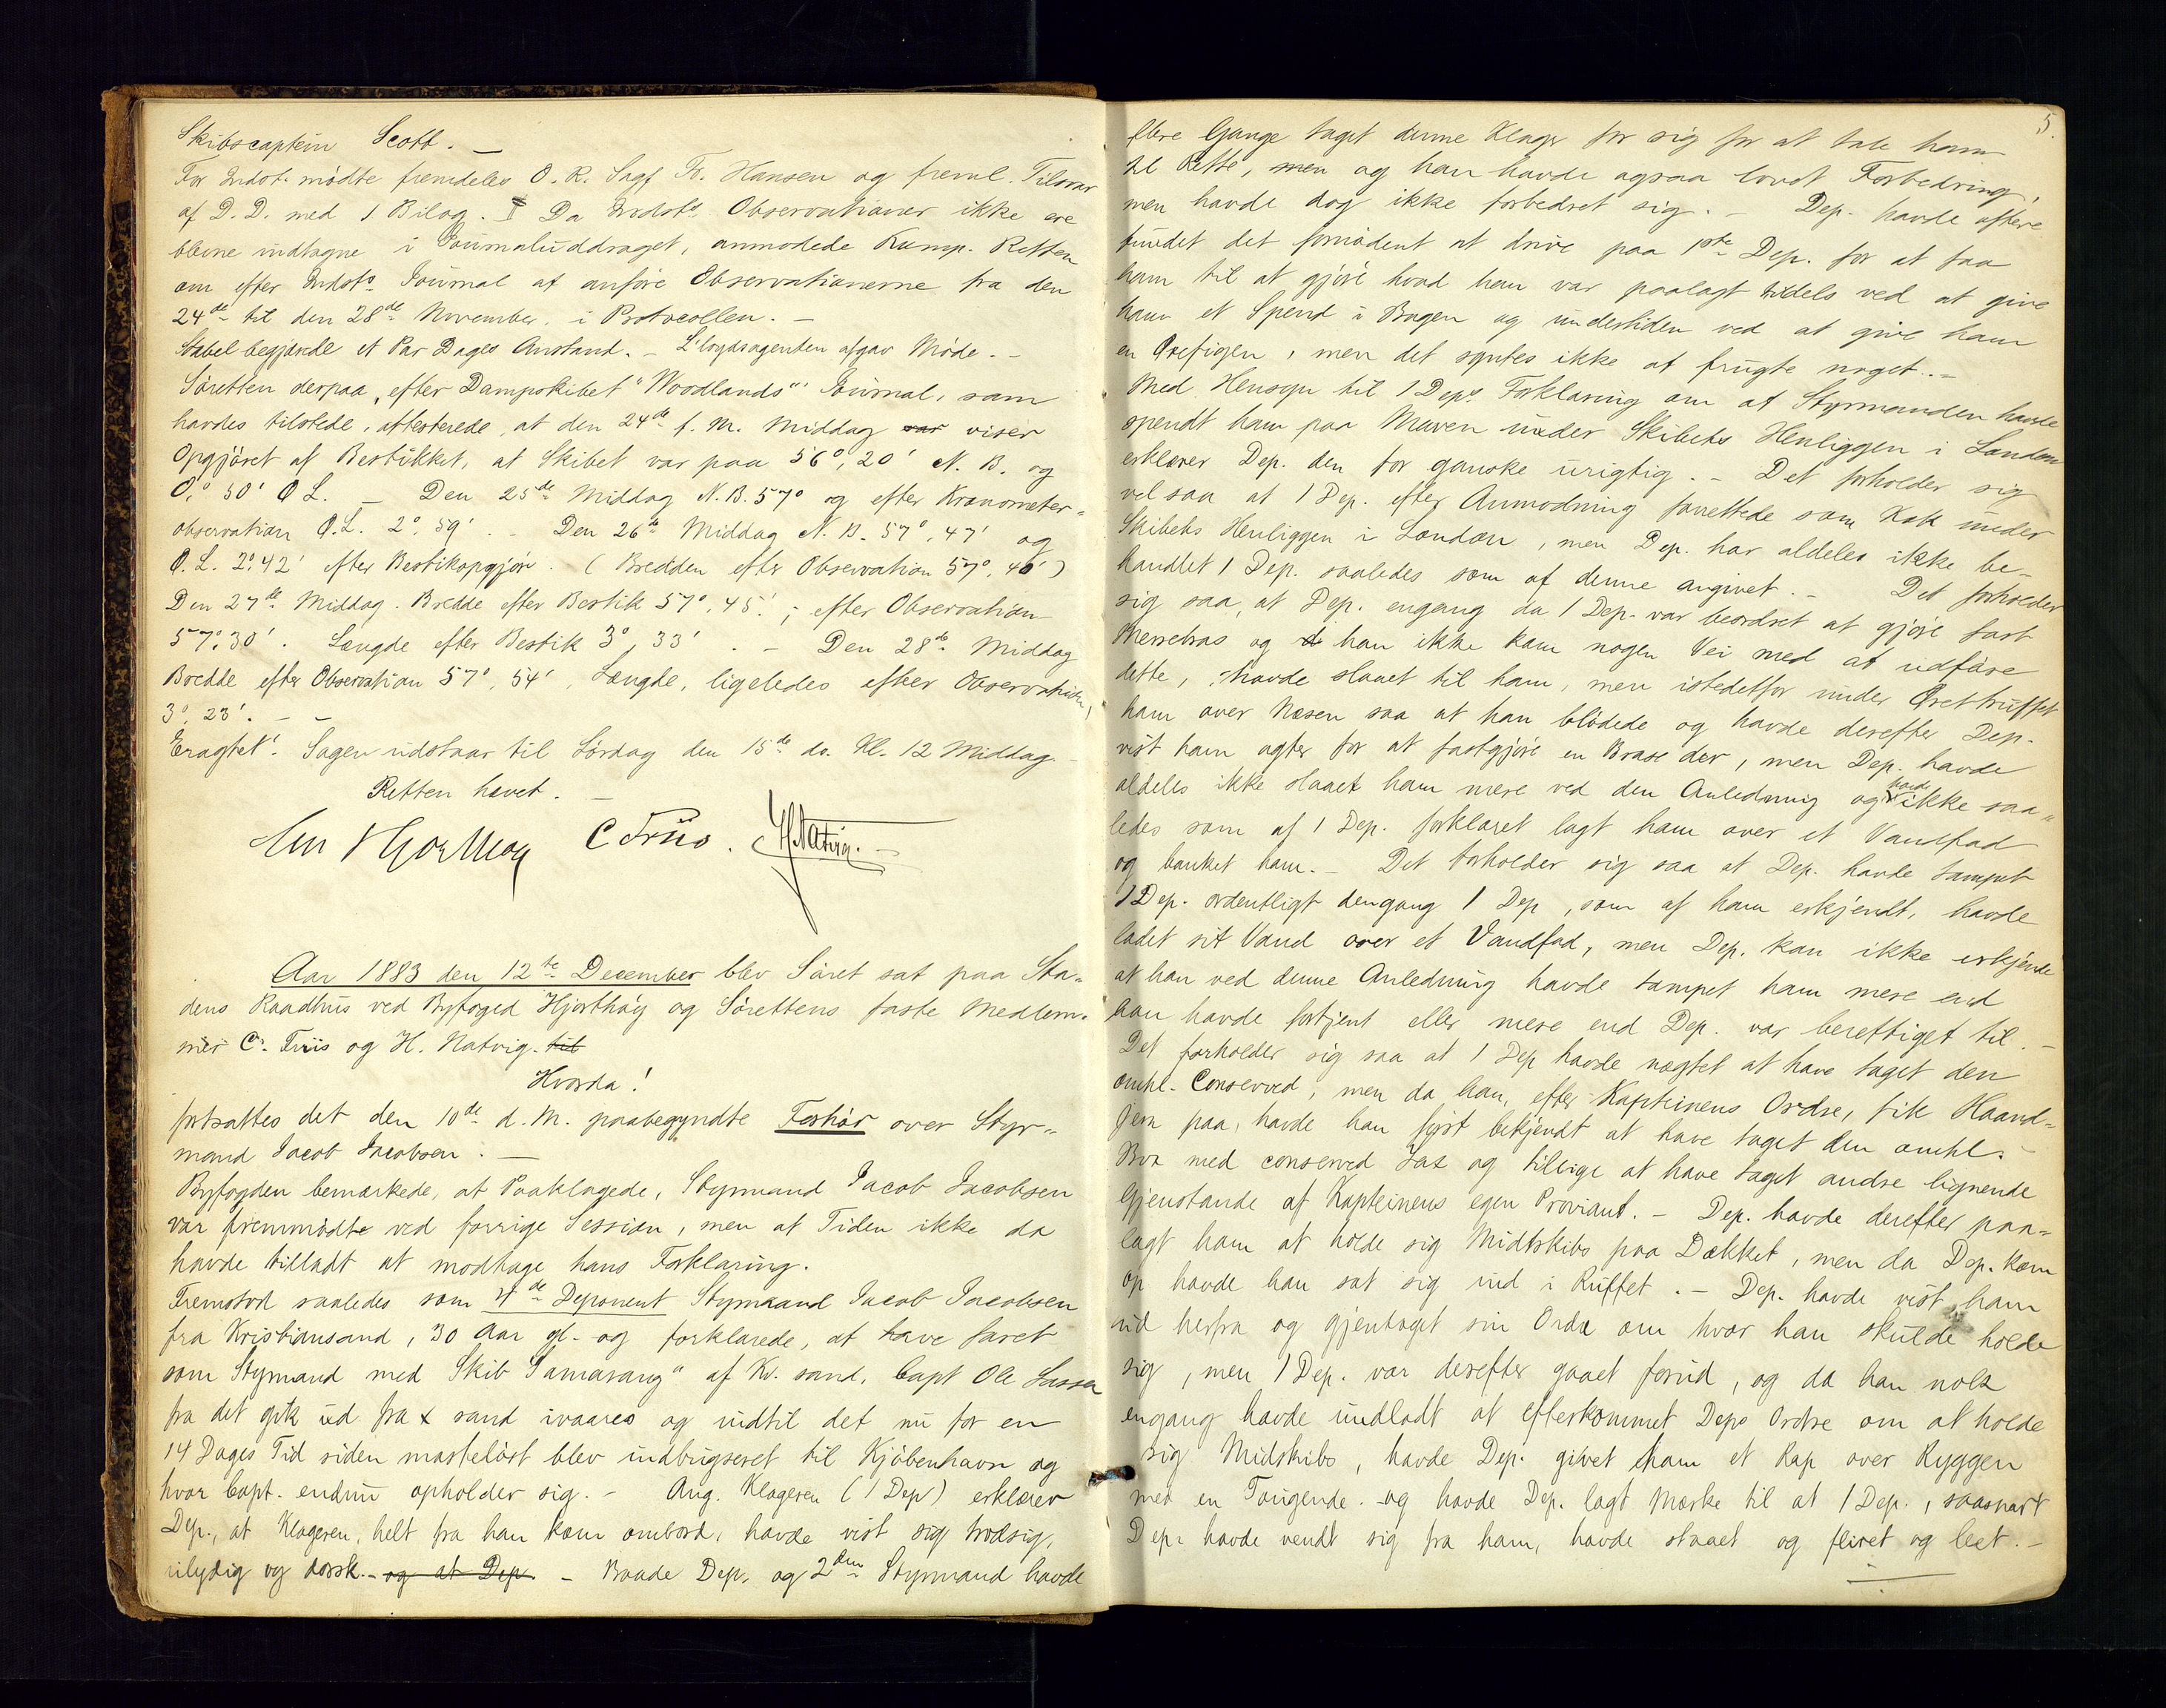 Skibscaptein Scott. —
For Indst. mødte fremdeles O. R. Sagf Fr. Hansen og freml. Tilsvar
af D. D. med 1 Bilag. Da Indsts. Observationer ikke ere
blevne indtagne i Journaluddraget, anmodede Komp. Retten
om efter Indsts. Journal at anføre Observationerne fra den
24de til den 28de November i Protocollen. —
Stabel begjærede et Par Dages Anstand. – Lloydsagenten afgav Møde. –
Søretten derpaa, efter Dampskibet "Woodlands" Journal, som
havdes tilstede, attesterede, at den 24de f. M. Middag var viser
Opgjøret af Bestikket, at Skibet var paa 56°, 20' N. B. og
0,° 50' Ø L. – Den 25de Middag N. B. 57° og efter Kronometer-
observation Ø. L. 2°, 59'. – Den 26de Middag N. B. 57°, 47' og
Ø. L. 2°. 42' efter Bestikopgjør. (Bredden efter Observation 57°, 46')
Den 27de Middag. Bredde efter Bestik 57°, 45'; efter Observation
57°. 30'. Længde efter Bestik 3°, 33'. – Den 28de Middag
Bredde efter Observation 57°, 54', Længde, ligeledes efter Observation,
3°, 23'. – –
Eragtet! Sagen udstaar til Lørdag den 15de ds. Kl. 12 Middag. –
Retten hævet. –
C Friis. H. Natvig. –
Aar 1883 den 12te December blev Søret sat paa Sta-
dens Raadhus ved Byfoged Hjorthøy og Sørettens faste Medlem-
mer C. Friis og H. Natvig. til
Hvorda!
fortsattes det den 10de d. M. paabegyndte Forhør over Styr-
mand Jacob Jacobsen. —
Byfogden bemærkede, at Paaklagede, Styrmand Jacob Jacobsen
var fremmødte ved forrige Session, men at Tiden ikke da
havde tilladt at modtage hans Forklaring.
Fremstod saaledes som 4de Deponent Styrmand Jacob Jacobsen
fra Kristiansand, 30 Aar gl. og forklarede, at have faret
som Styrmand med Skib "Samarang" af Kr. sand, Capt Ole
fra det gik ud fra x sand ivaares og indtil det nu for en
14 Dages Tid siden masteløst blev indbugseret til Kjøbenhavn og
hvor Capt. endnu opholder sig. – Ang. Klageren (1 Dep) erklærer
Dep., at Klageren, helt fra han kom ombord, havde vist sig trodsig,
ulydig og dorsk. – og at Dep – Baade Dep. og 2den Styrmand havde
5.
flere Gange taget denne Klager for sig for at tale ham
til Rette, men og han havde ogsaa lovet Forbedring,
men havde dog ikke forbedret sig. – Dep. havde oftere
fundet det fornødent at drive paa 1ste Dep. for at faa
ham til at gjøre hvad han var paalagt tildels ved at give
ham et Spend i Bagen og undertiden ved at give ham
en Ørefigen, men det syntes ikke at frugte noget. –
Med Hensyn til 1 Deps Forklaring om at Styrmanden havde
spendt ham paa Maven under Skibets Henliggen i London
erklærer Dep. den for ganske urigtig. – Det forholder sig
vel saa at 1 Dep. efter Anmodning forrettede som Kok under
Skibets Henliggen i London, men Dep. har aldeles ikke be-
handlet 1 Dep. saaledes som af denne angivet. – Det forholder
sig saa, at Dep. engang da 1 Dep. var beordret at gjøre fast
Mersebras og han ikke kom nogen Vei med at udføre
dette, havde slaaet til ham, men istedetfor under Øret truffet
ham over Næsen saa at han blødede og havde derefter Dep.
vist ham agter for at fastgjøre en Brase der, men Dep. havde
aldeles ikke slaaet ham mere ved den Anledning og havde ikke saa-
ledes som af 1 Dep. forklaret lagt ham over et Vandfad
og banket ham. – Det forholder sig saa at Dep. havde tampet
1 Dep. ordentligt dengang 1 Dep, som af ham erkjendt, havde
ladet sit Vand over et Vandfad, men Dep. kan ikke erkjende
at han ved denne Anledning havde tampet ham mere end
han havde fortjent eller mere end Dep. var berettiget til. –
Det forholder sig saa at 1 Dep havde nægtet at have taget den
omhl. Conserved, men da han, efter Kapteinens Ordre, fik Haand-
jern paa, havde han først bekjendt at have taget den omhl.
Box med conserved Lax og tillige at have taget andre lignende
Gjenstande af Kapteinens egen Proviant. – Dep. havde derefter paa-
lagt ham at holde sig Midtskibs paa Dækket, men da Dep. kom
op havde han sat sig ind i Ruffet. – Dep. havde vist ham
ud herfra og gjentaget sin Ordre om hvor han skulde holde
sig, men 1 Dep. var derefter gaaet forud, og da han nok
engang havde undladt at efterkommet Deps Ordre om at holde
sig Midskibs, havde Dep. givet ham et Rap over Ryggen
med en Tougende. og havde Dep. lagt Mærke til at 1 Dep., saasnart
Dep. havde vendt sig fra ham, havde staaet og fliret og leet. –